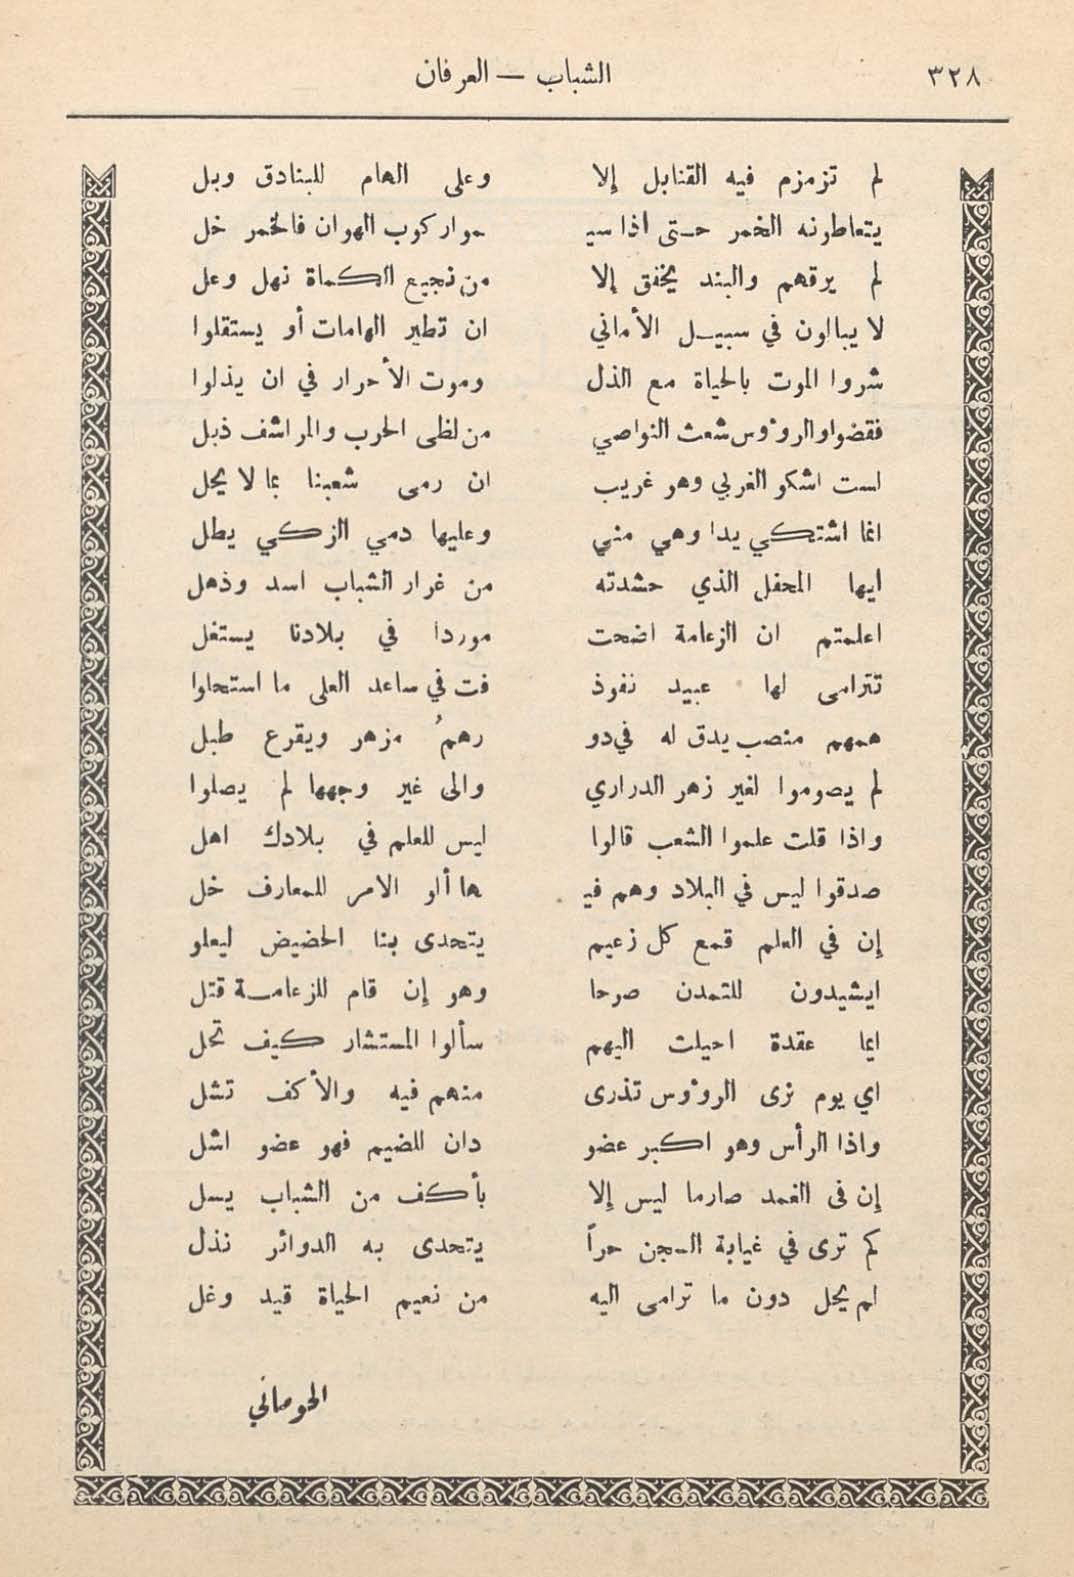 ٣٢٨
الشباب — العرفان
لم تزمزم فيه القنابل إلا وعلى الهام للبنادق وبل
يتعاطونه الخمر حتى اذا سيـ ـموا ركوب الهوان فالخمر خل
لم يرقهم والبند يخفق إلا من نجيع الكماة نهل وعل
لا يبالون في سبيل الأماني ان تطير الهامات أو يستقلوا
شروا الموت بالحياة مع الذل وموت الأحرار في ان يذلوا
فقضوا والروٴوس شعث النواصي من لظى الحرب والمراشف ذبل
لست اشكو الغربي وهو غريب ان رمى شعبنا بما لا يحل
انما اشتكي يدا وهي مني وعليها دمي الزكي يطل
ايها المحفل الذي حشدته من غرار الشباب اسد وذهل
اعلمتم ان الزعامة اضحت موردا في بلادنا يستغل
تترامى لها عبيد نفوذ فت في ساعد العلى ما استحلوا
همهم منصب يدق له في دو رهمُ مزهر ويقرع طبل
لم يصوموا لغير زهر الدراري والى غير وجهها لم يصلوا
واذا قلت علموا الشعب قالوا ليس للعلم في بلادك اهل
صدقوا ليس في البلاد وهم فيـ ها أألو الامر للمعارف خل
إن في العلم قمع كل زعيم يتحدى بنا الحضيض ليعلو
ايشيدون للتمدن صرحا وهو إن قام للزعامة قتل
ايما عقدة احيلت اليهم سألوا المستشار كيف تحل
اي يوم نرى الروٴوس تذرى منهم فيه والأكف تشل
واذا الرأس وهو اكبر عضو دان للضيم فهو عضو اشل
إن في الغمد صارما ليس إلا بأكف من الشباب يسل
كم ترى في غيابة السجن حراً يتحدى به الدوائر نذل
لم يحل دون ما ترامى اليه من نعيم الحياة قيد وغل
الحوماني